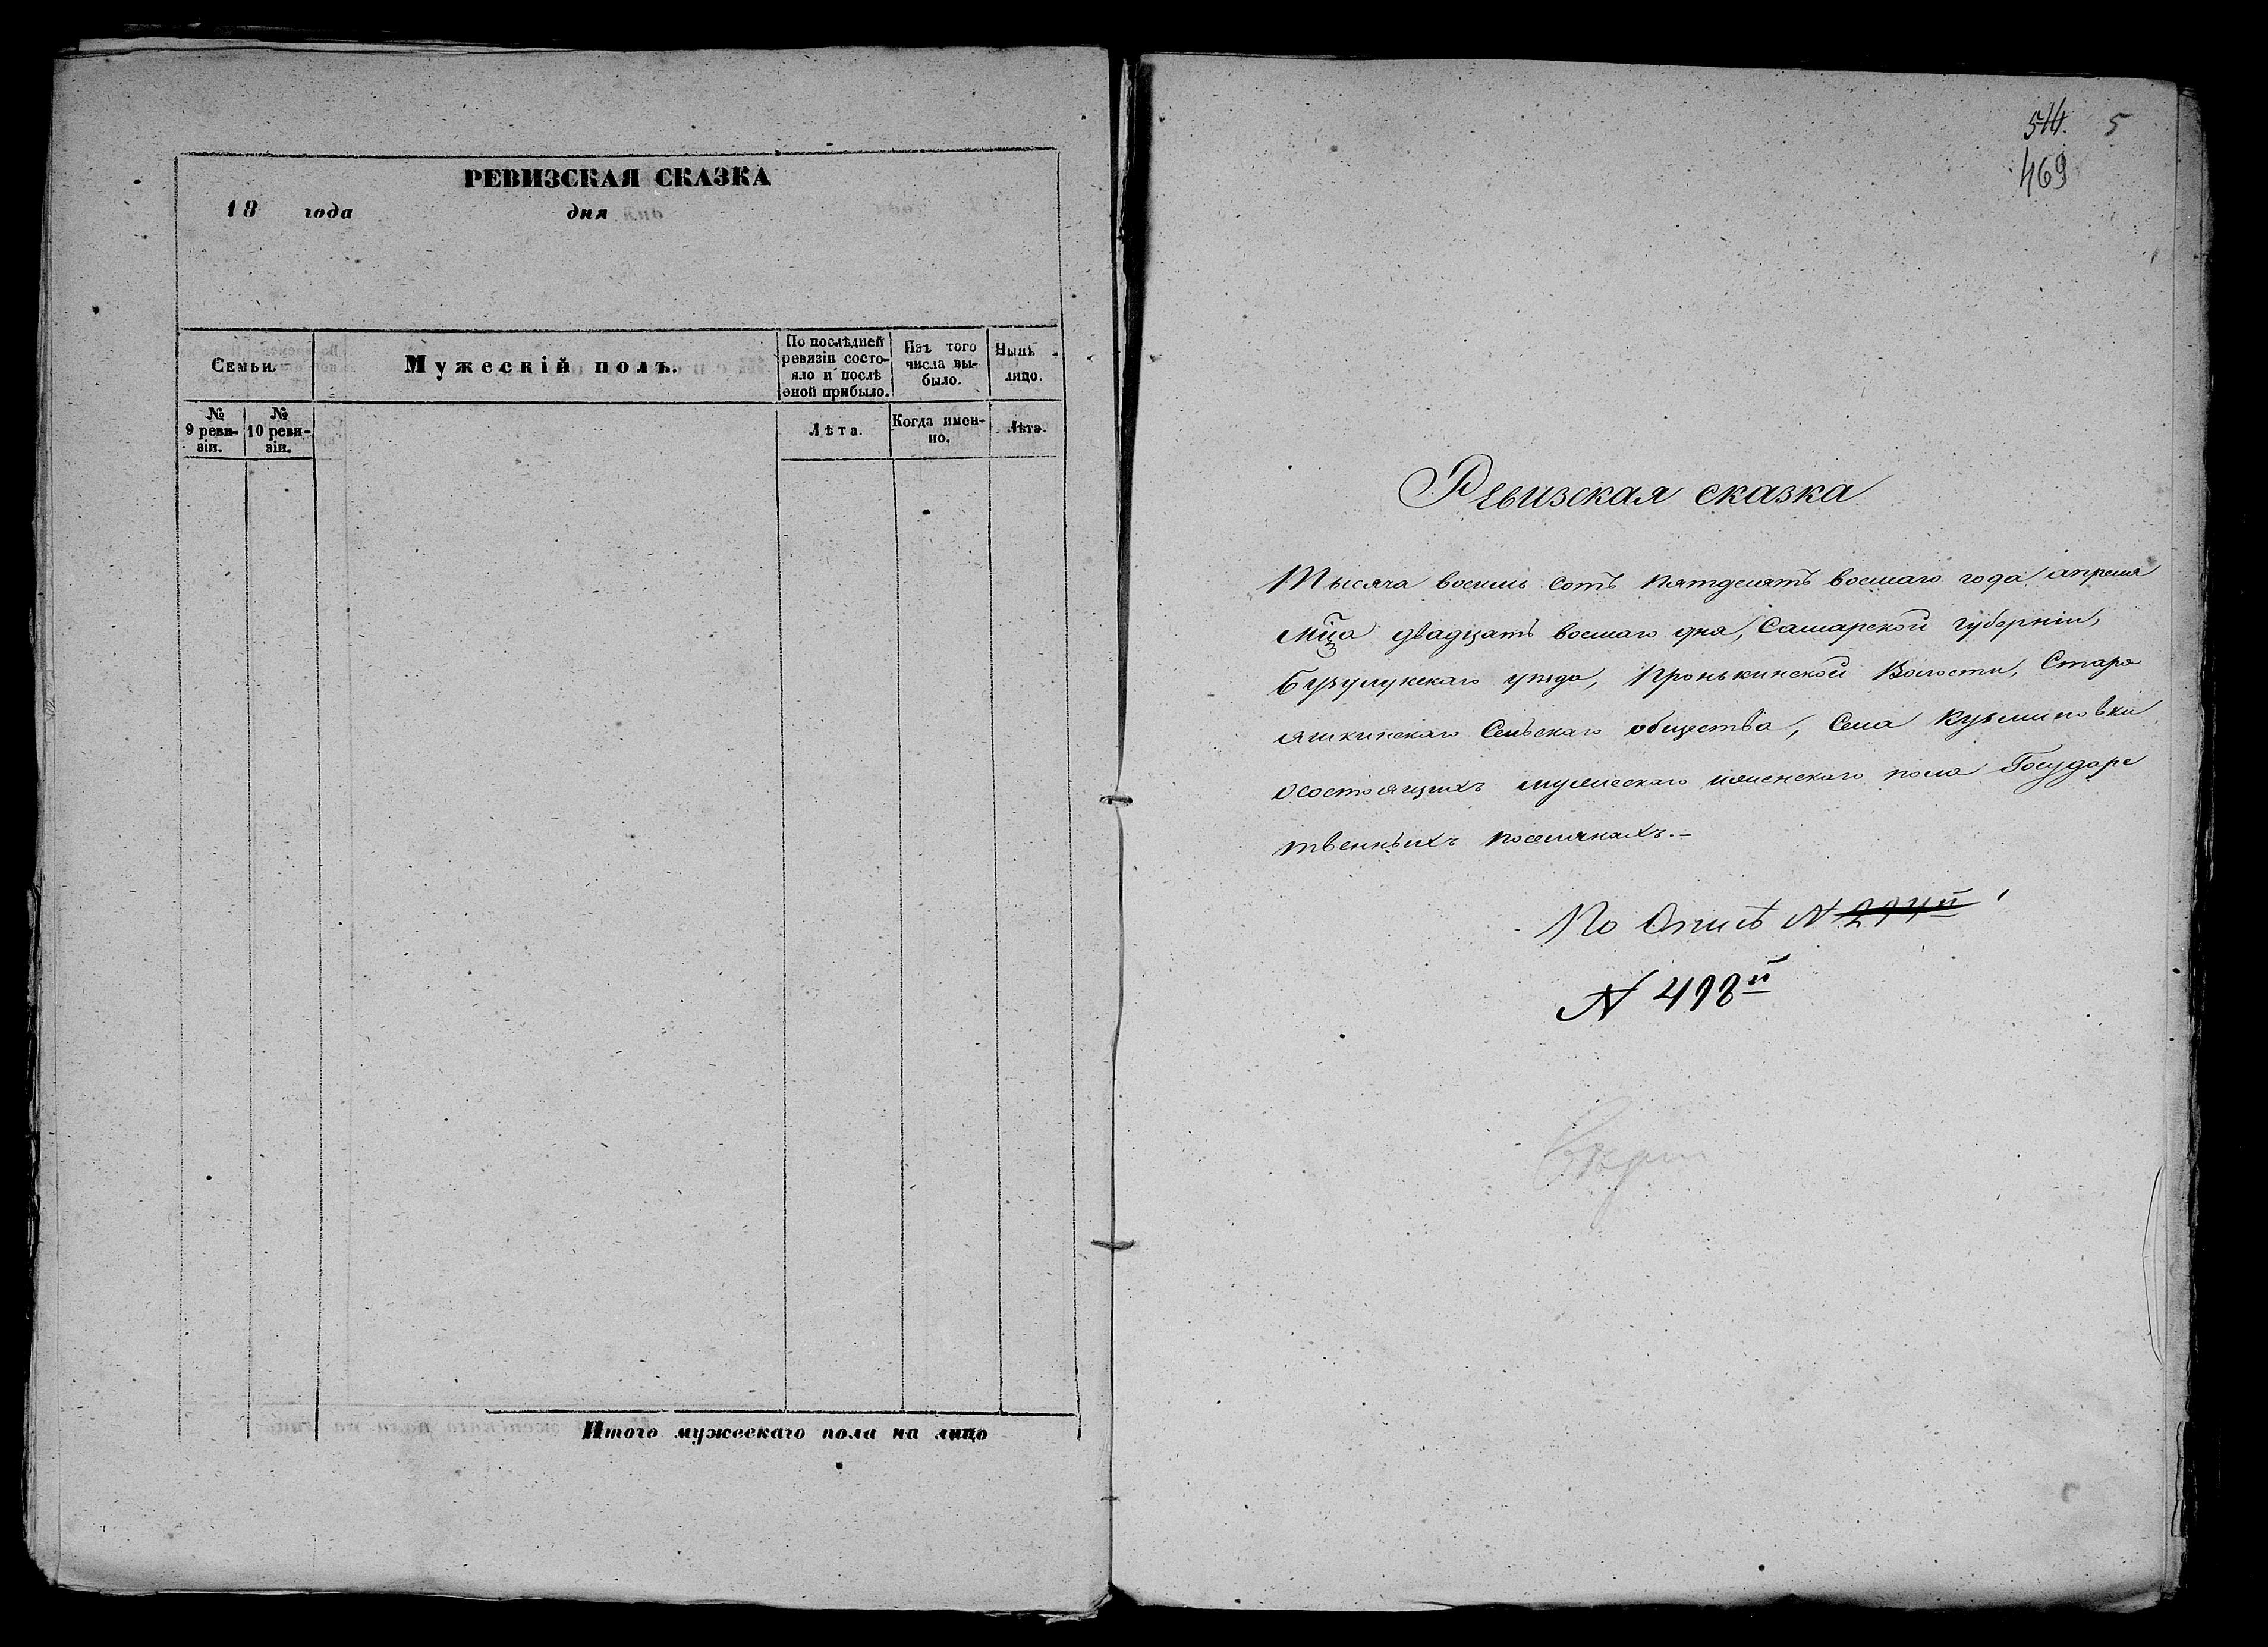 РЕВИЗСКАЯ СКАЗКА
18 года дня
Семьи.
Мужескій полъ.
По послѣдней
ревизіи состо-
яло и послѣ
оной прибыло.
Изъ того
числа вы-
было.
Нынѣ
лицо.
№
9 реви-
зіи.
№
10 реви-
зіи.
Лѣта.
Когда имен-
но.
Лѣта.
Итого мужескаго пола на лицо
5
469
Ревизская сказка
Тысяча восемь сотъ пятдесятъ восмаго года апреля
мца двадцать восмаго дня, Самарской губерніи,
Бузулукскаго уѣзда, Пронькинской Волости, Старо
яшкинскаго Сельскаго общества, Села Кузминовки
осостоящихъ мужескаго иженскаго пола Государс
твенныхъ поселянахъ.-
По Описѣ N
N 498й